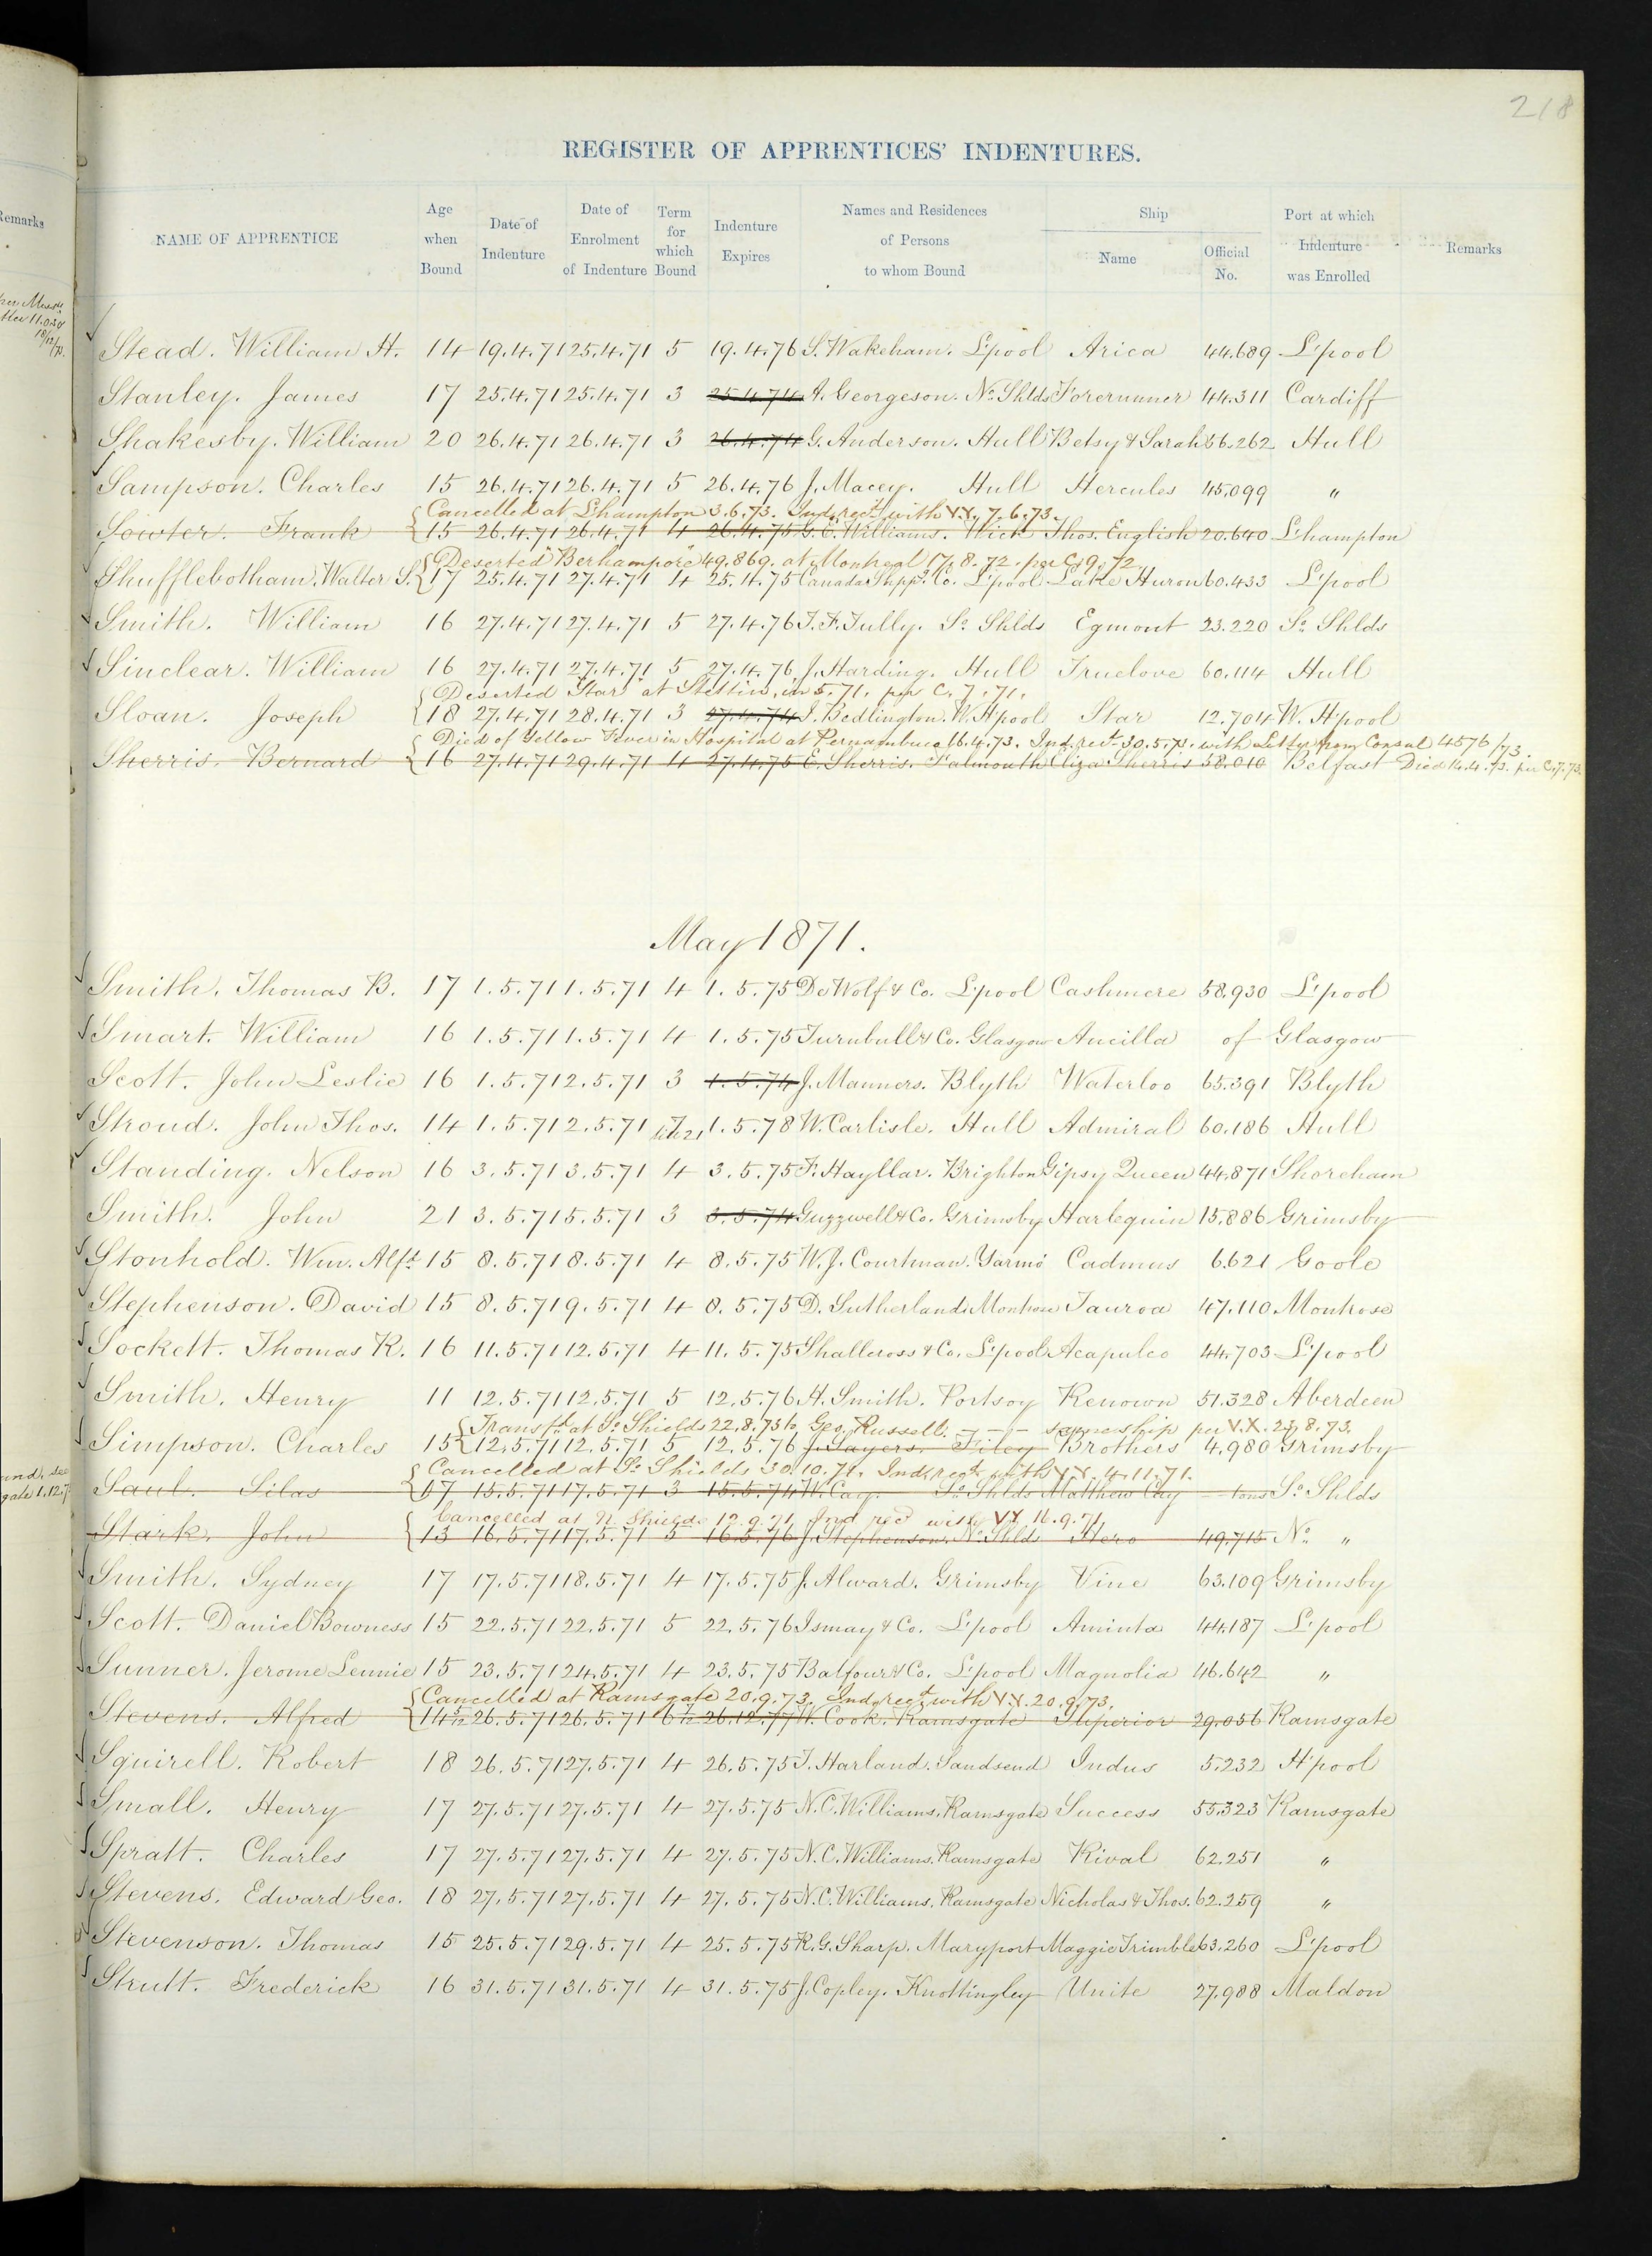 218
REGISTER OF APPRENTICES' INDENTURES.
Remarks
NAME OF APPRENTICE
Age when Bound
Date of Indenture
Date of Enrolment of Indenture
Term for which Bound
Indenture Expires
Names and Residences of Persons to whom Bound
Ship
Name
Official No.
Port at which Indenture was Enrolled
Remarks
Stead. William H. 14 19.4.71 25.4.71 5 19.4.76 S. Wakeham. L'pool Arica 44.689 L'pool
Stanley. James 17 25.4.71 25.4.71 3 25.4.74 A. Georgeson. No. Shlds Forerunner 44.311 Cardiff
Shakesby. William 20 26.4.71 26.4.71 3 26.4.74 G. Anderson. Hull Betsy & Sarah 56.262 Hull
Sampson. Charles 15 26.4.71 26.4.71 5 26.4.76 J. Macey. Hull Hercules 45.099 "
Cancelled at L'hampton 3.6.73. Ind. rect. with VX. 7.6.73.
Sowter. Frank 15 26.4.71 26.4.71 4 26.4.75 G. E. Williams. Wick Thos. English 20.640 L'hampton
Deserted "Berhampore" 49.869. at Montreal 17.8.72. per C. 9.72
Shufflebotham. Walter S. 17 25.4.71 27.4.71 4 25.4.75 Canada Shippg. Co. L'pool Lake Huron 60.433 L'pool
Smith. William 16 27.4.71 27.4.71 5 27.4.76 T. F. Tully. So. Shlds Egmont 23.220 So. Shlds
Sinclear. William 16 27.4.71 27.4.71 5 27.4.76 J. Harding. Hull Truelove 60.114 Hull
Deserted "Star" at Stettin, in 5.71. per C. 7.71.
Sloan. Joseph 18 27.4.71 28.4.71 3 27.4.74 J. Bedlington. W. H'pool Star 12.704 W. H'pool
Died of Yellow Fever in Hospital at Pernambuco 16.4.73. Ind. rect. 30.5.73. with Letter from Consul 4576/73.
Sherris. Bernard 16 27.4.71 29.4.71 4 27.4.75 E. Sherris. Falmouth Eliza Sherris 58.010 Belfast Died 16.4.73. per C. 7.73.
May 1871.
Smith. Thomas B. 17 1.5.71 1.5.71 4 1.5.75 De Wolf & Co. L'pool Cashmere 58.930 L'pool
Smart. William 16 1.5.71 1.5.71 4 1.5.75 Turnbull & Co. Glasgow Ancilla of Glasgow
Scott. John Leslie 16 1.5.71 2.5.71 3 1.5.74 J. Manners. Blyth Waterloo 65.391 Blyth
Stroud. John Thos. 14 1.5.71 2.5.71 7 till 21 1.5.78 W. Carlisle. Hull Admiral 60.186 Hull
Standing. Nelson 16 3.5.71 3.5.71 4 3.5.75 F. Hayllar. Brighton Gipsy Queen 44.871 Shoreham
Smith. John 21 3.5.71 5.5.71 3 3.5.74 Guzzwell & Co. Grimsby Harlequin 15.886 Grimsby
Stonhold. Wm. Alfd. 15 8.5.71 8.5.71 4 8.5.75 W. J. Courtman. Yarmo' Cadmus 6.621 Goole
Stephenson. David 15 8.5.71 9.5.71 4 8.5.75 D. Sutherland. Montrose Tauroa 47.110 Montrose
Sockett. Thomas R. 16 11.5.71 12.5.71 4 11.5.75 Shallcross & Co. L'pool Acapulco 44.703 L'pool
Smith. Henry 11 12.5.71 12.5.71 5 12.5.76 H. Smith. Portsoy Renown 51.328 Aberdeen
Transfd. at So. Shields 22.8.73 to Geo. Russell. — same ship per V.X. 23.8.73.
Simpson. Charles 15 12.5.71 12.5.71 5 12.5.76 J. Sayers. Filey Brothers 4.980 Grimsby
Cancelled at So. Shields 30.10.71. Ind. rect. with VX. 4.11.71.
Saul. Silas 17 15.5.71 17.5.71 3 15.5.74 W. Cay. So. Shlds Matthew Cay tons So. Shlds
Cancelled at N. Shields 12.9.71 Ind recd with VX 16.9.71
Stark. John 13 16.5.71 17.5.71 5 16.5.76 J. Stephenson. No. Shlds Hero 49.715 No. "
Smith. Sydney 17 17.5.71 18.5.71 4 17.5.75 J. Alward. Grimsby Vine 63.109 Grimsby
Scott. Daniel Bowness 15 22.5.71 22.5.71 5 22.5.76 Ismay & Co. L'pool Aminta 44.187 L'pool
Sunner. Jerome Lennie 15 23.5.71 24.5.71 4 23.5.75 Balfour & Co. L'pool Magnolia 46.642 "
Cancelled at Ramsgate 20.9.73. Ind. rect. with V.X. 20.9.73.
Stevens. Alfred 14 5/12 26.5.71 26.5.71 6 7/12 26.12.77 W. Cook. Ramsgate Superior 29.056 Ramsgate
Squirell. Robert 18 26.5.71 27.5.71 4 26.5.75 T. Harland. Sandsend Indus 5.232 H'pool
Small. Henry 17 27.5.71 27.5.71 4 27.5.75 N. C. Williams. Ramsgate Success 55.323 Ramsgate
Spratt. Charles 17 27.5.71 27.5.71 4 27.5.75 N. C. Williams. Ramsgate Rival 62.251 "
Stevens. Edward Geo. 18 27.5.71 27.5.71 4 27.5.75 N. C. Williams. Ramsgate Nicholas & Thos. 62.259 "
Stevenson. Thomas 15 25.5.71 29.5.71 4 25.5.75 R. G. Sharp. Maryport Maggie Trimble 63.260 L'pool
Strutt. Frederick 16 31.5.71 31.5.71 4 31.5.75 J. Copley. Knottingley Unite 27.988 Maldon